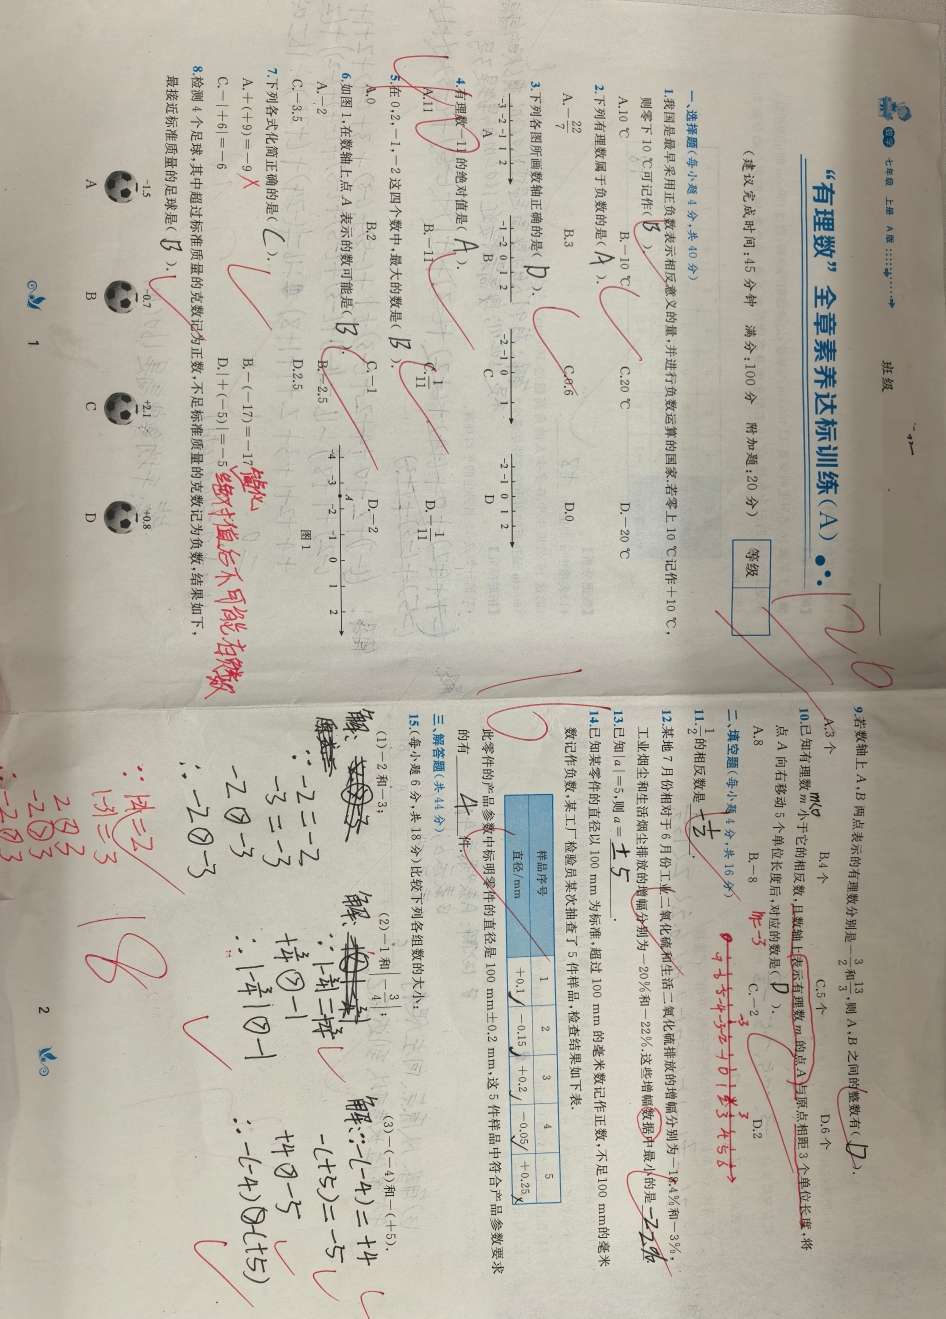 七年级 上册 A版
班级
“有理数”全章素养达标训练(A)
(建议完成时间:45分钟 满分:100分 附加题:20分)
等级
120
一、选择题(每小题4分,共40分)
1.我国是最早采用正负数表示相反意义的量,并进行负数运算的国家.若零上10℃记作+10℃,
则零下10℃可记作( B ).
A.10℃ B.-10℃ C.20℃ D.-20℃
2.下列有理数属于负数的是( A ).
A.-22/7 B.3 C.0.6 D.0
3.下列各图所画数轴正确的是( D ).
-3 -2 -1 1 2 -1 -2 0 1 2 -2 -1 0 1 -2 -1 0 1 2
A B C D
4.有理数-11的绝对值是( A ).
A.11 B.-11 C.1/11 D.-1/11
5.在0,2,-1,-2这四个数中,最大的数是( B ).
A.0 B.2 C.-1 D.-2
6.如图1,在数轴上点A表示的数可能是( B ).
A.-2 B.-2.5
C.-3.5 D.2.5
A
-4 -3 -2 -1 0 1 2
图1
7.下列各式化简正确的是( C ).
A.+(+9)=-9 B.-(-17)=-17
C.-|+6|=-6 D.|+(-5)|=-5
8.检测4个足球,其中超过标准质量的克数记为正数,不足标准质量的克数记为负数,结果如下,
最接近标准质量的足球是( B ).
-1.5 -0.7 +2.1 +0.8
A B C D
1
9.若数轴上A,B两点表示的有理数分别是-3/2和13/3,则A,B之间的整数有( D ).
A.3个 B.4个 C.5个 D.6个
10.已知有理数m小于它的相反数,且数轴上表示有理数m的点A与原点相距3个单位长度,将
m<0
点A向右移动5个单位长度后,对应的数是( D ).
A.8 B.-8 C.-2 D.2
m=-3
二、填空题(每小题4分,共16分)
11.1/2的相反数是 -1/2 .
12.某地7月份相对于6月份工业二氧化硫和生活二氧化硫排放的增幅分别为-18.4%和-3%,
工业烟尘和生活烟尘排放的增幅分别为-20%和-22%.这些增幅数据中最小的是 -22% .
13.已知|a|=5,则a= ±5 .
14.已知某零件的直径以100 mm为标准,超过100 mm的毫米数记作正数,不足100 mm的毫米
数记作负数,某工厂检验员某次抽查了5件样品,检查结果如下表.
样品序号 1 2 3 4 5
直径/mm +0.1 -0.15 +0.2 -0.05 +0.25
此零件的产品参数中标明零件的直径是100 mm±0.2 mm,这5件样品中符合产品参数要求
的有 4 件.
16
三、解答题(共44分)
15.(每小题6分,共18分)比较下列各组数的大小:
(1)-2和-3; (2)-1和|-3/4|; (3)-(-4)和-(+5).
2
18